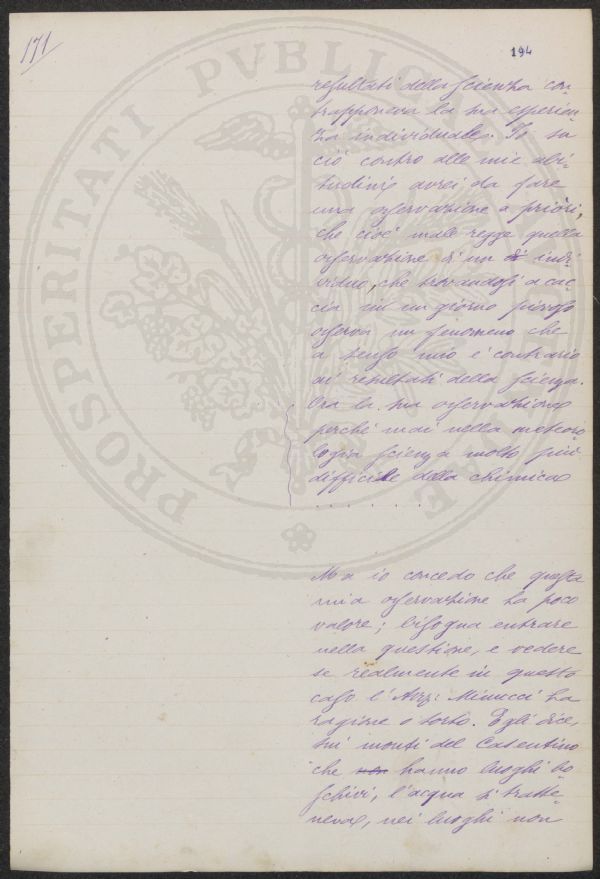 171
194
PROSPERITATI PVBLICAE
resultati della scienza con
trapponeva la sua esperien
za individuale. Io su
ciò contro alle mie abi-
tudini avrei da fare
una osservazione a priori,
che cioè male regge quella
osservazione d'un indi
viduo, che trovandosi a cac
cia in un giorno piovoso
osserva un fenomeno che
a senso mio è contrario
ai resultati della scienza.
Ora la sua osservazione
perchè mai nella meteoro
logia scienza molto più
difficile della chimica
. . . . . . .
Ma io concedo che questa
mia osservazione ha poco
valore; bisogna entrare
nella questione, e vedere
se realmente in questo
caso l'Avv: Minucci ha
ragione o torto. Egli dice,
sui monti del Casentino
che non hanno luoghi bo
schivi, l'acqua si tratte-
neva, nei luoghi non